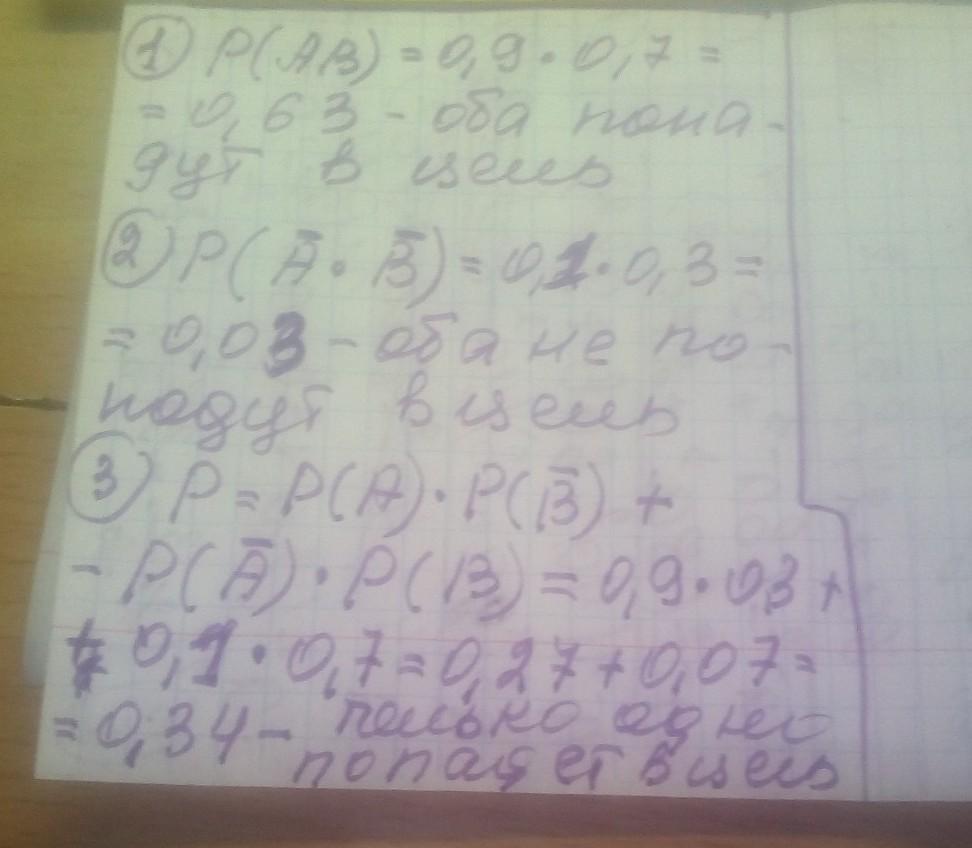 ① P(AB) = 0,9 · 0,7 =
= 0,63 - оба попа-
дут в цель
② P(Ā · B̄) = 0,1 · 0,3 =
= 0,03 - оба не по-
падут в цель
③ P = P(A) · P(B̄) +
- P(Ā) · P(B) = 0,9 · 0,3 +
+ 0,1 · 0,7 = 0,27 + 0,07 =
= 0,34 - только одно
попадет в цель